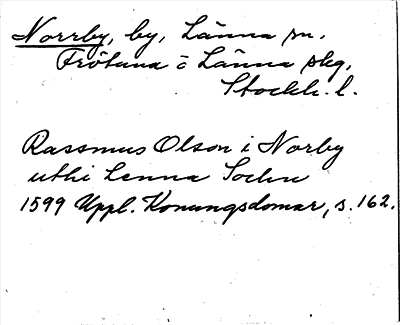 Norrby, by, Länna sn.
Frötuna o Länna skg,
Stockh. l.
Rassmus Olson i Norby
uthi Lenna Sochn
1599 Uppl. Konungsdomar, s. 162.